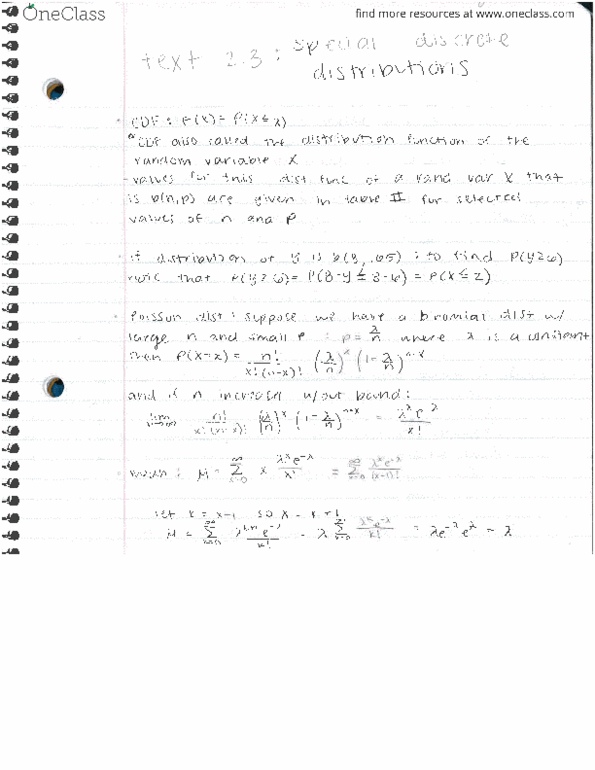 OneClass
find more resources at www.oneclass.com
text 2.3 : special discrete
distributions
CDF : F(x) = P(X ≤ x)
CDF also called the distribution function of the
random variable X
- values for this dist func of a rand var X that
is b(n,p) are given in table II for selected
values of n and p
if distribution of Y is b(8, .65) : to find P(Y≥6)
note that P(Y≥6) = P(8-Y ≤ 8-6) = P(X ≤ 2)
Poisson dist : suppose we have a bromial dist w/
large n and small p : p = λ/n where λ is a constant
then P(X=x) = n!/x!(n-x)! (λ/n)^x (1-λ/n)^n-x
and if n increases w/out bound :
lim n!/x!(n-x)! (λ/n)^x (1-λ/n)^n-x = λ^x e^-λ/x!
mean : μ = Σ x λ^x e^-λ/x! = Σ λ^x e^-λ/(x-1)!
let k = x-1 so x = k+1
μ = Σ λ^k+1 e^-λ/k! = λ Σ λ^k e^-λ/k! = λe^-λ e^λ = λ